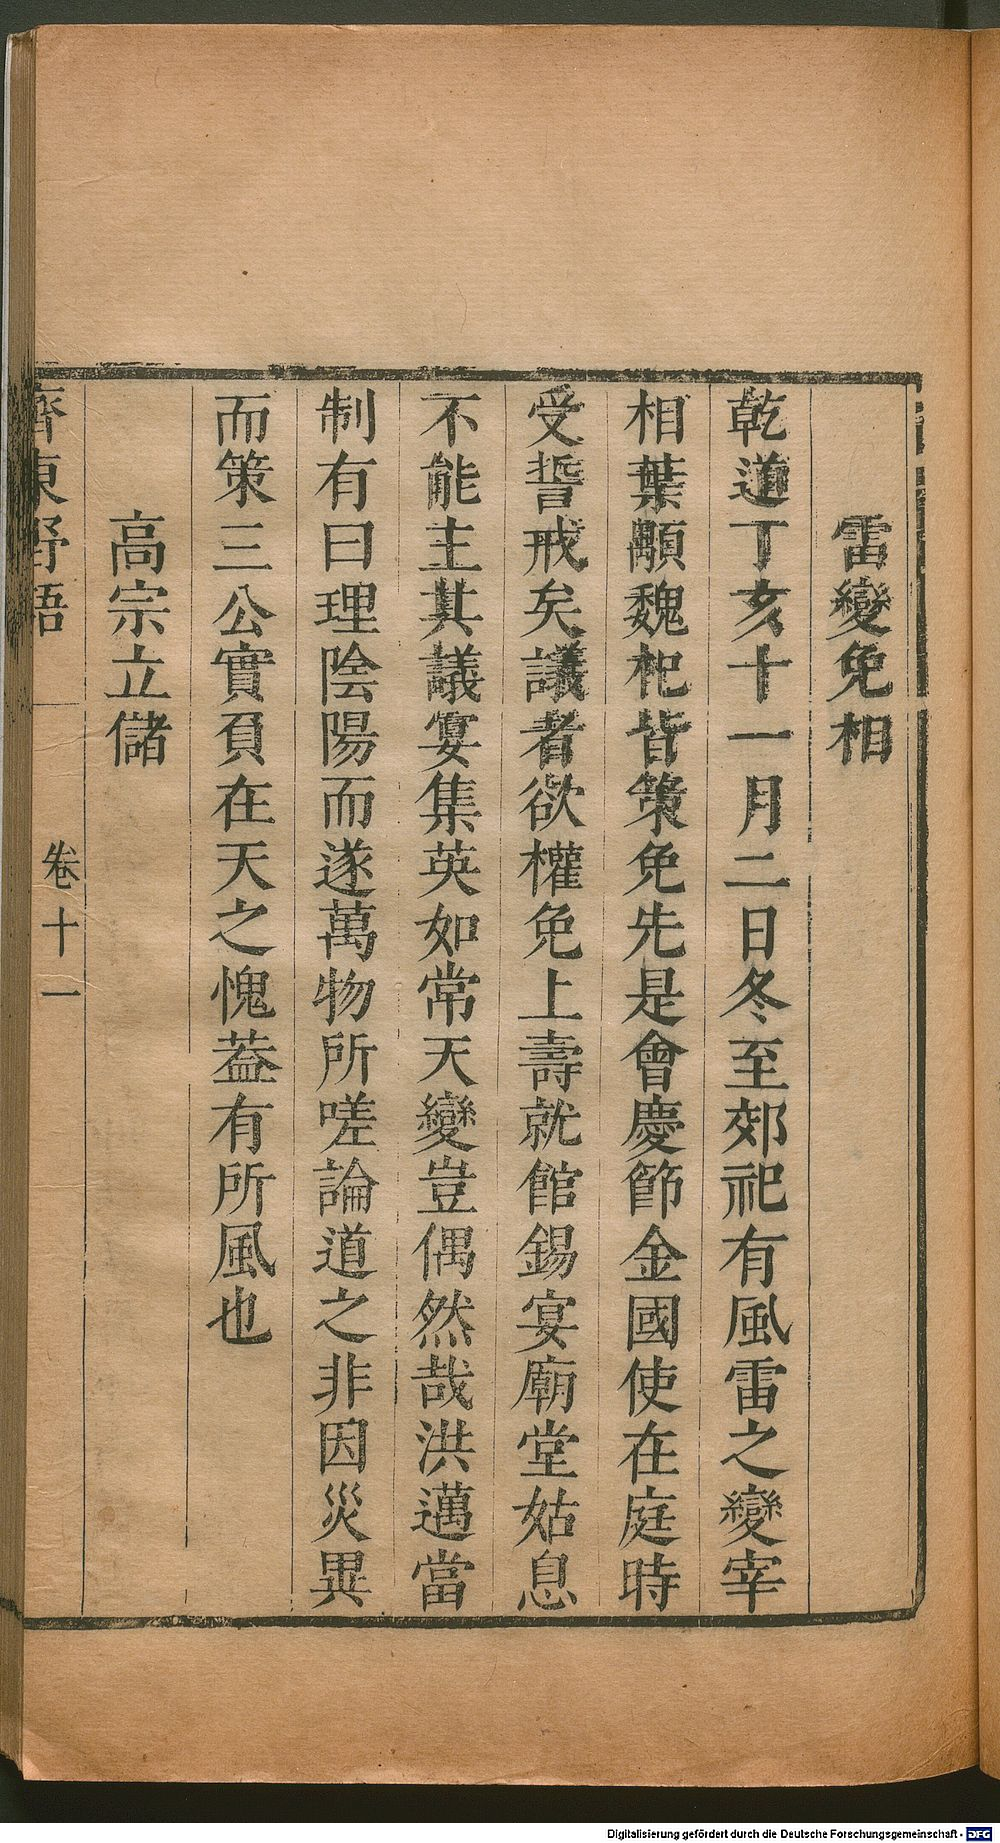 雷變免相
乾道丁亥十一月二日冬至郊祀有風雷之變宰
相葉顒魏杞皆策免先是會慶節金國使在庭時
受誓戒矣議者欲權免上壽就館錫宴廟堂姑息
不能主其議宴集英如常天變豈偶然哉洪邁當
制有曰理陰陽而遂萬物所嗟論道之非因災異
而策三公實負在天之愧葢有所風也
高宗立儲
齊東野語
卷十一
Digitalisierung gefördert durch die Deutsche Forschungsgemeinschaft - DFG